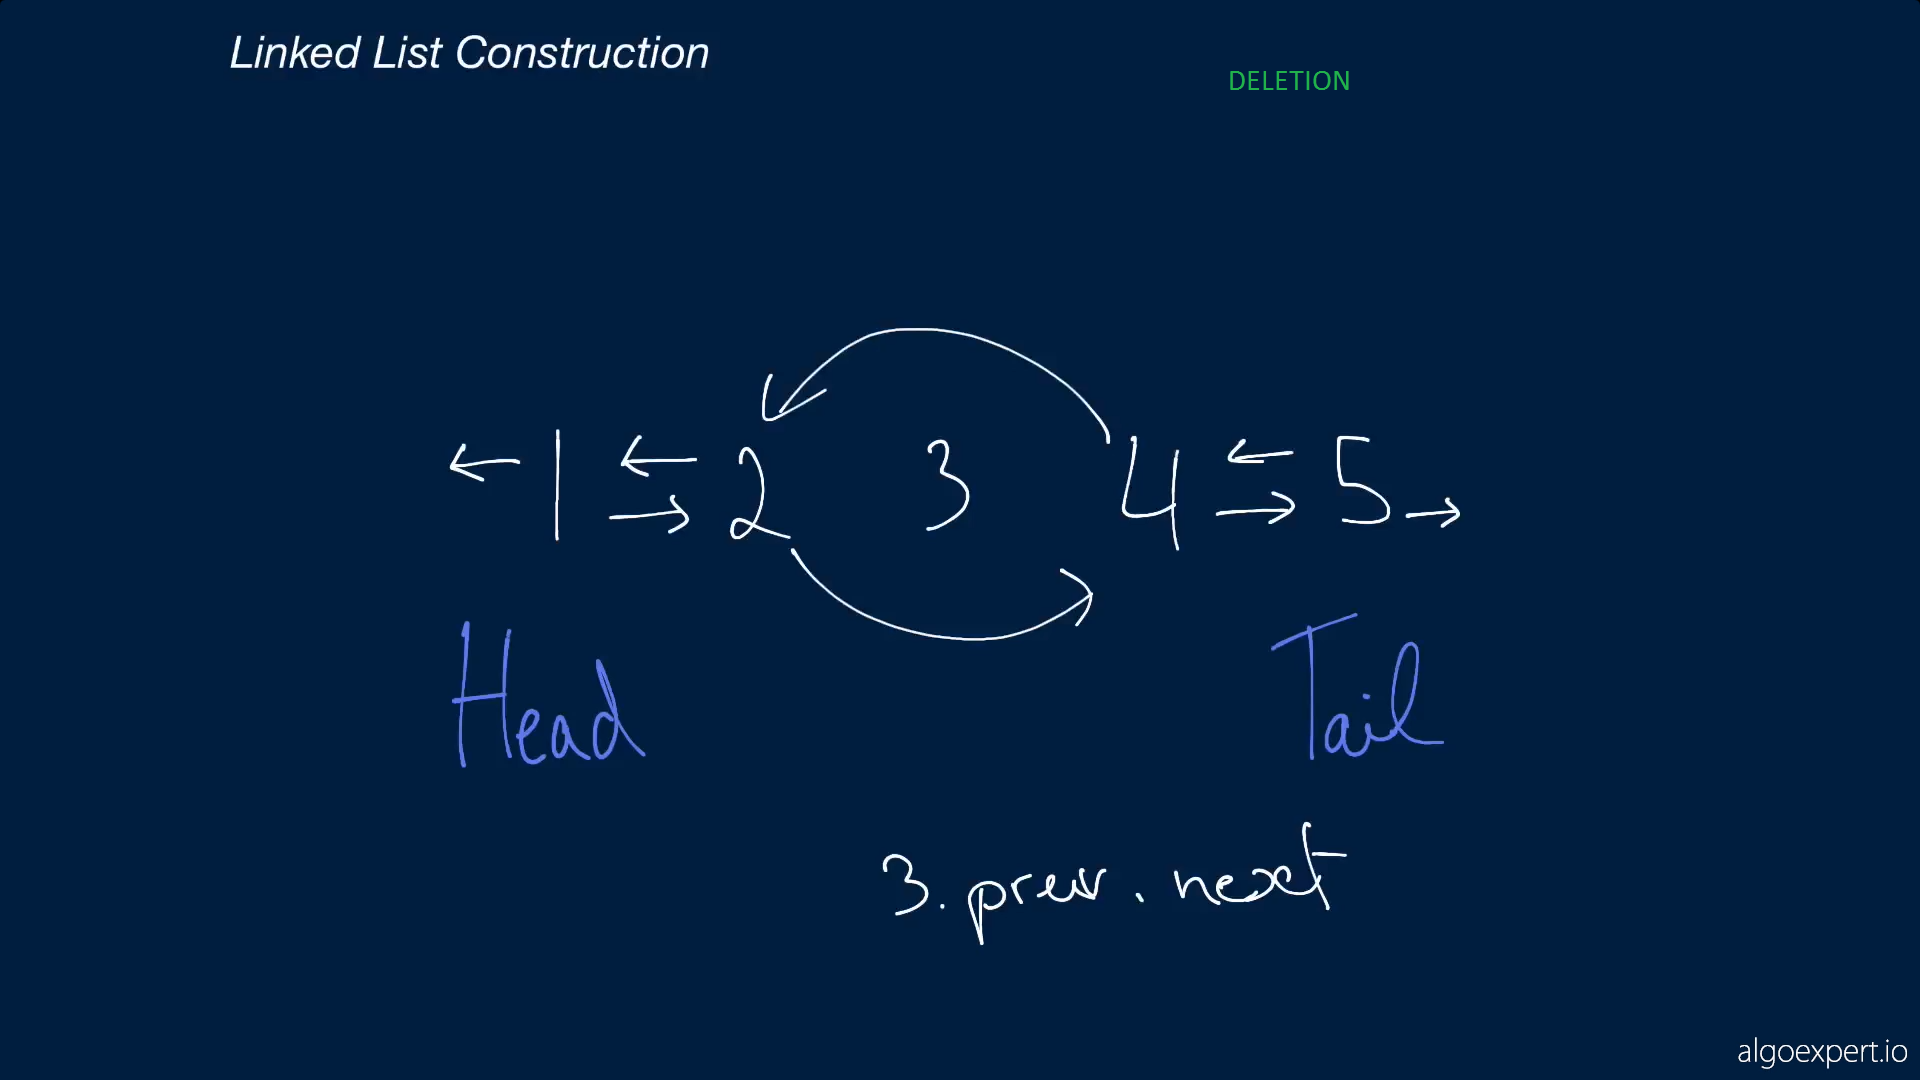 Linked List Construction
DELETION
1 2 3 4 5
Head Tail
3.prev.next
algoexpert.io